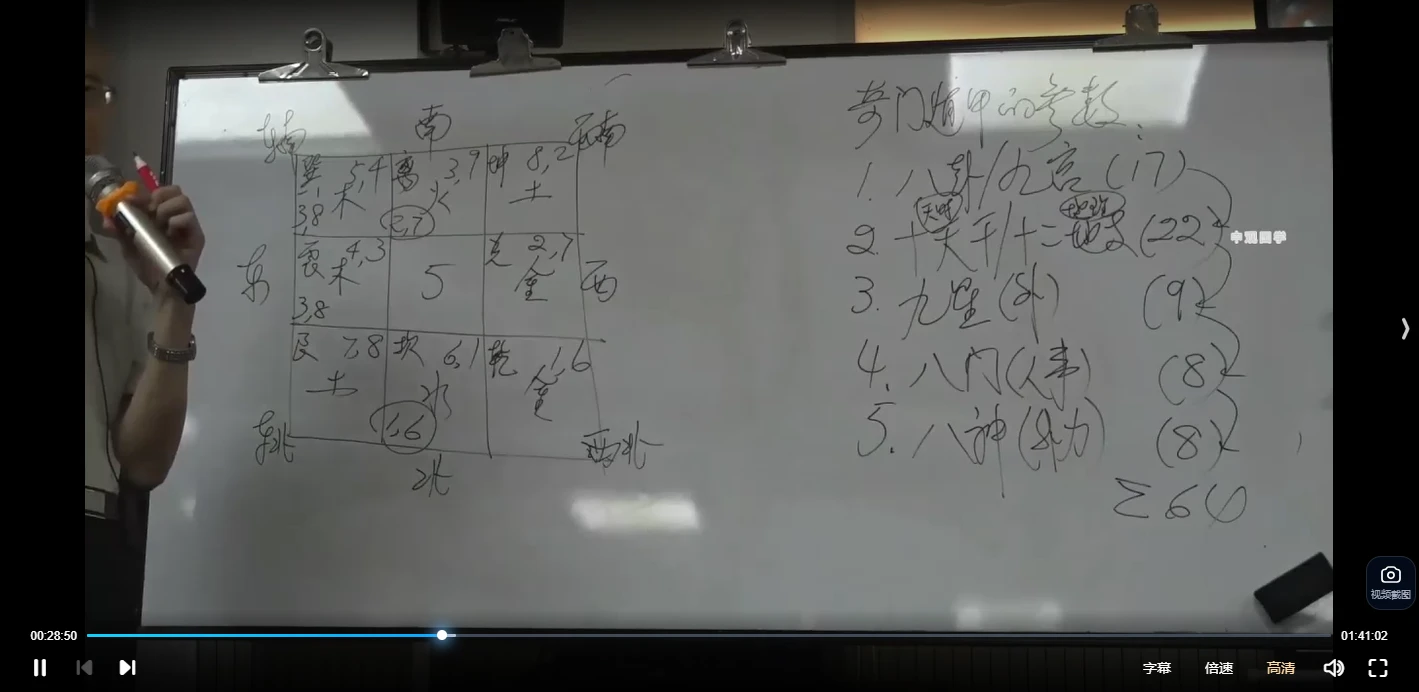 奇门遁甲的参数:
东南 南 西南
巽 5,4 离 3,9 坤 8,2
木 火 土
3,8 2,7
1. 八卦/九宫 (17)
天时
2. 十天干/十二地支 (22)
中观国学
东 震 4,3 5 兑 2,7 西
木 金
3,8
3. 九星 (外) (9)
艮 7,8 坎 6,1 乾 1,6
土 水 金
1,6
4. 八门 (人事) (8)
东北 北 西北
5. 八神 (外力) (8)
Σ64
视频截图
00:28:50 01:41:02
字幕 倍速 高清